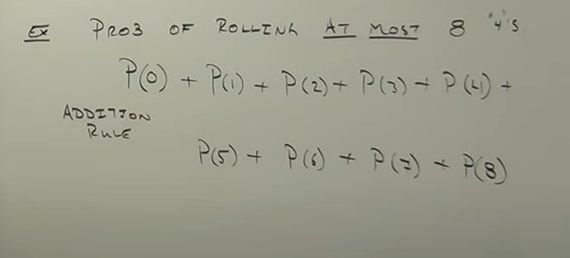 Ex PROB OF ROLLING AT MOST 8 "4"s.
P(0) + P(1) + P(2) + P(3) + P(4) +
ADDITION
RULE
P(5) + P(6) + P(7) + P(8)